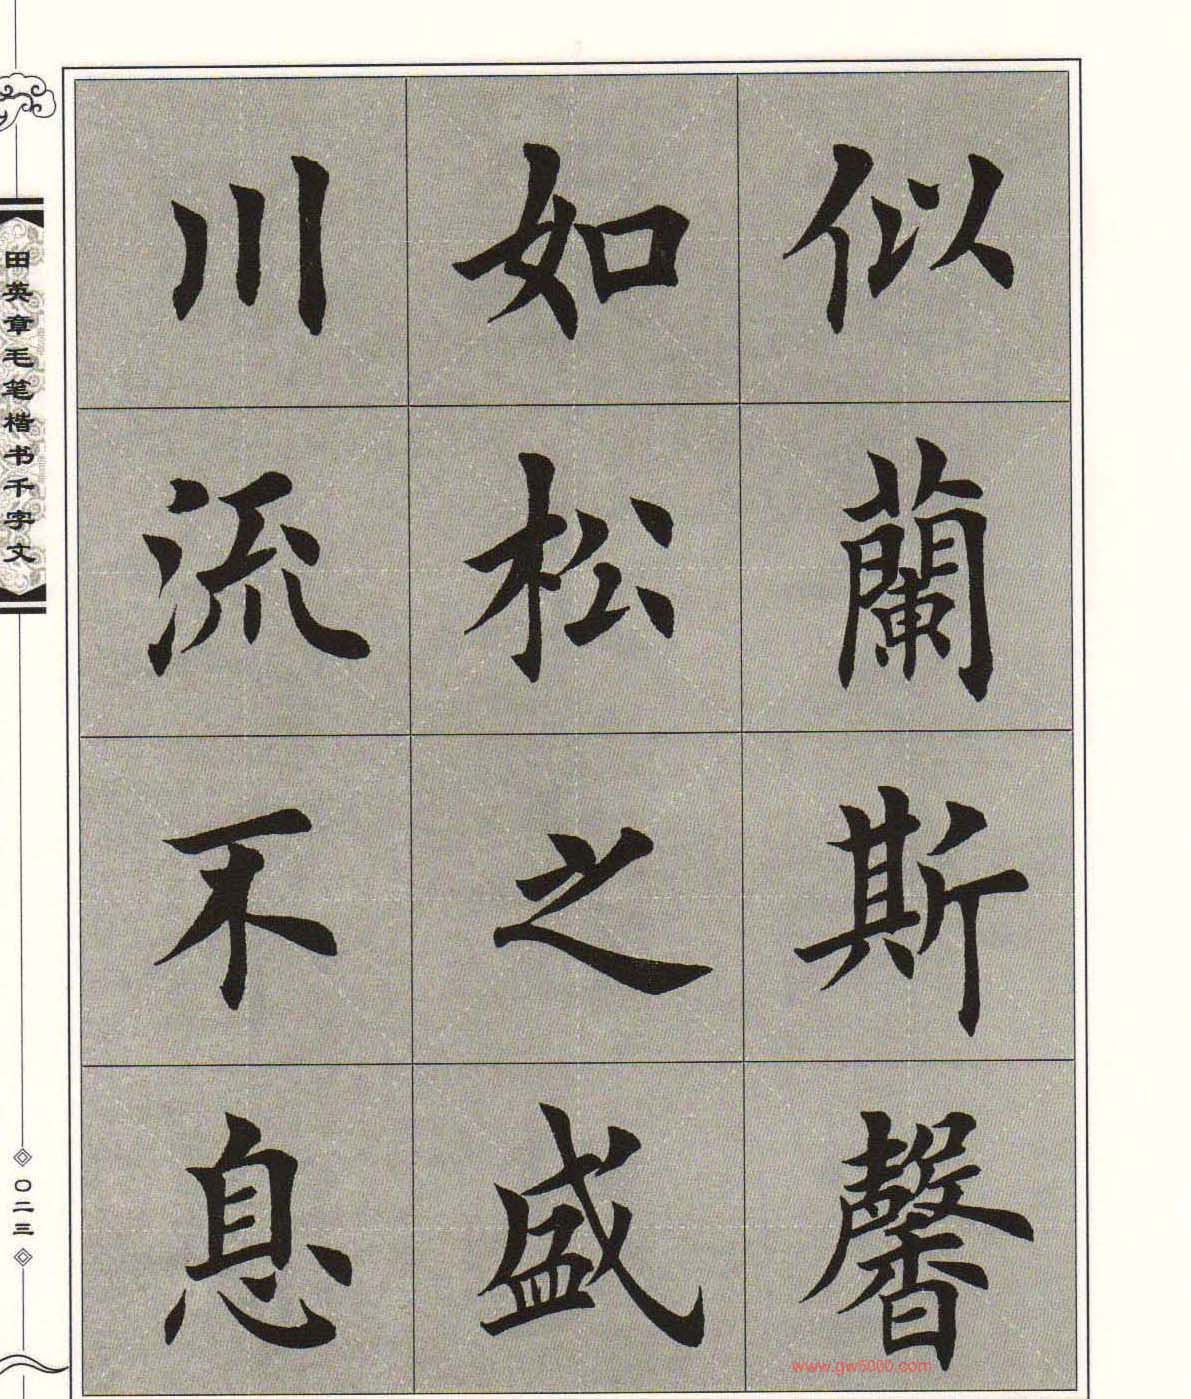 似蘭斯馨
如松之盛
川流不息
田英章毛笔楷书千字文
〇二三
www.gw5000.com